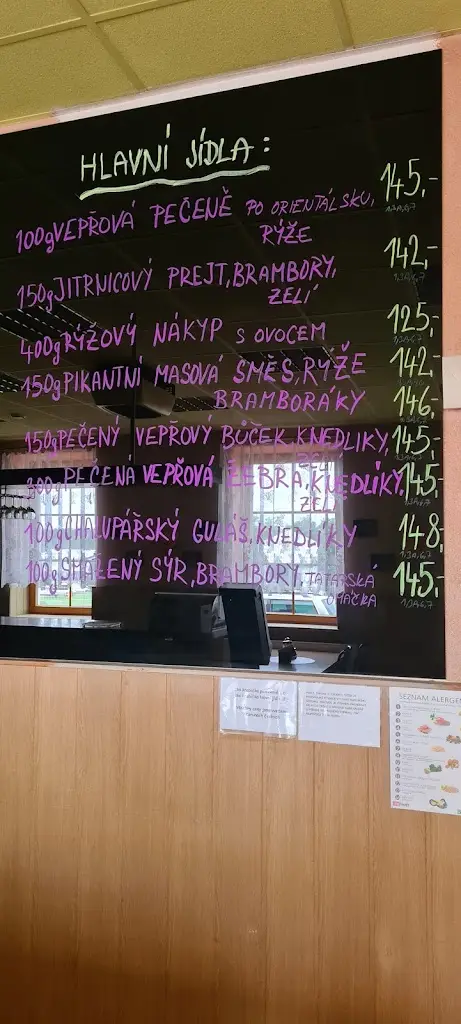 HLAVNÍ JÍDLA:
100g VEPŘOVÁ PEČENĚ PO ORIENTÁLSKU, 145,-
RÝŽE
150g JITRNICOVÝ PREJT, BRAMBORY, 142,-
ZELÍ
400g RÝŽOVÝ NÁKYP S OVOCEM 125,-
150g PIKANTNÍ MASOVÁ SMĚS, RÝŽE 142,-
BRAMBORÁKY 146,-
150g PEČENÝ VEPŘOVÝ BŮČEK, KNEDLIKY, 145,-
300g PEČENÁ VEPŘOVÁ ŽEBRA, KNEDLÍKY, 145,-
ZELÍ
100g CHALUPÁŘSKÝ GULÁŠ, KNEDLÍKY 148,-
100g SMAŽENÝ SÝR, BRAMBORY, TATARSKÁ 145,-
OMÁČKA
SEZNAM ALERGE